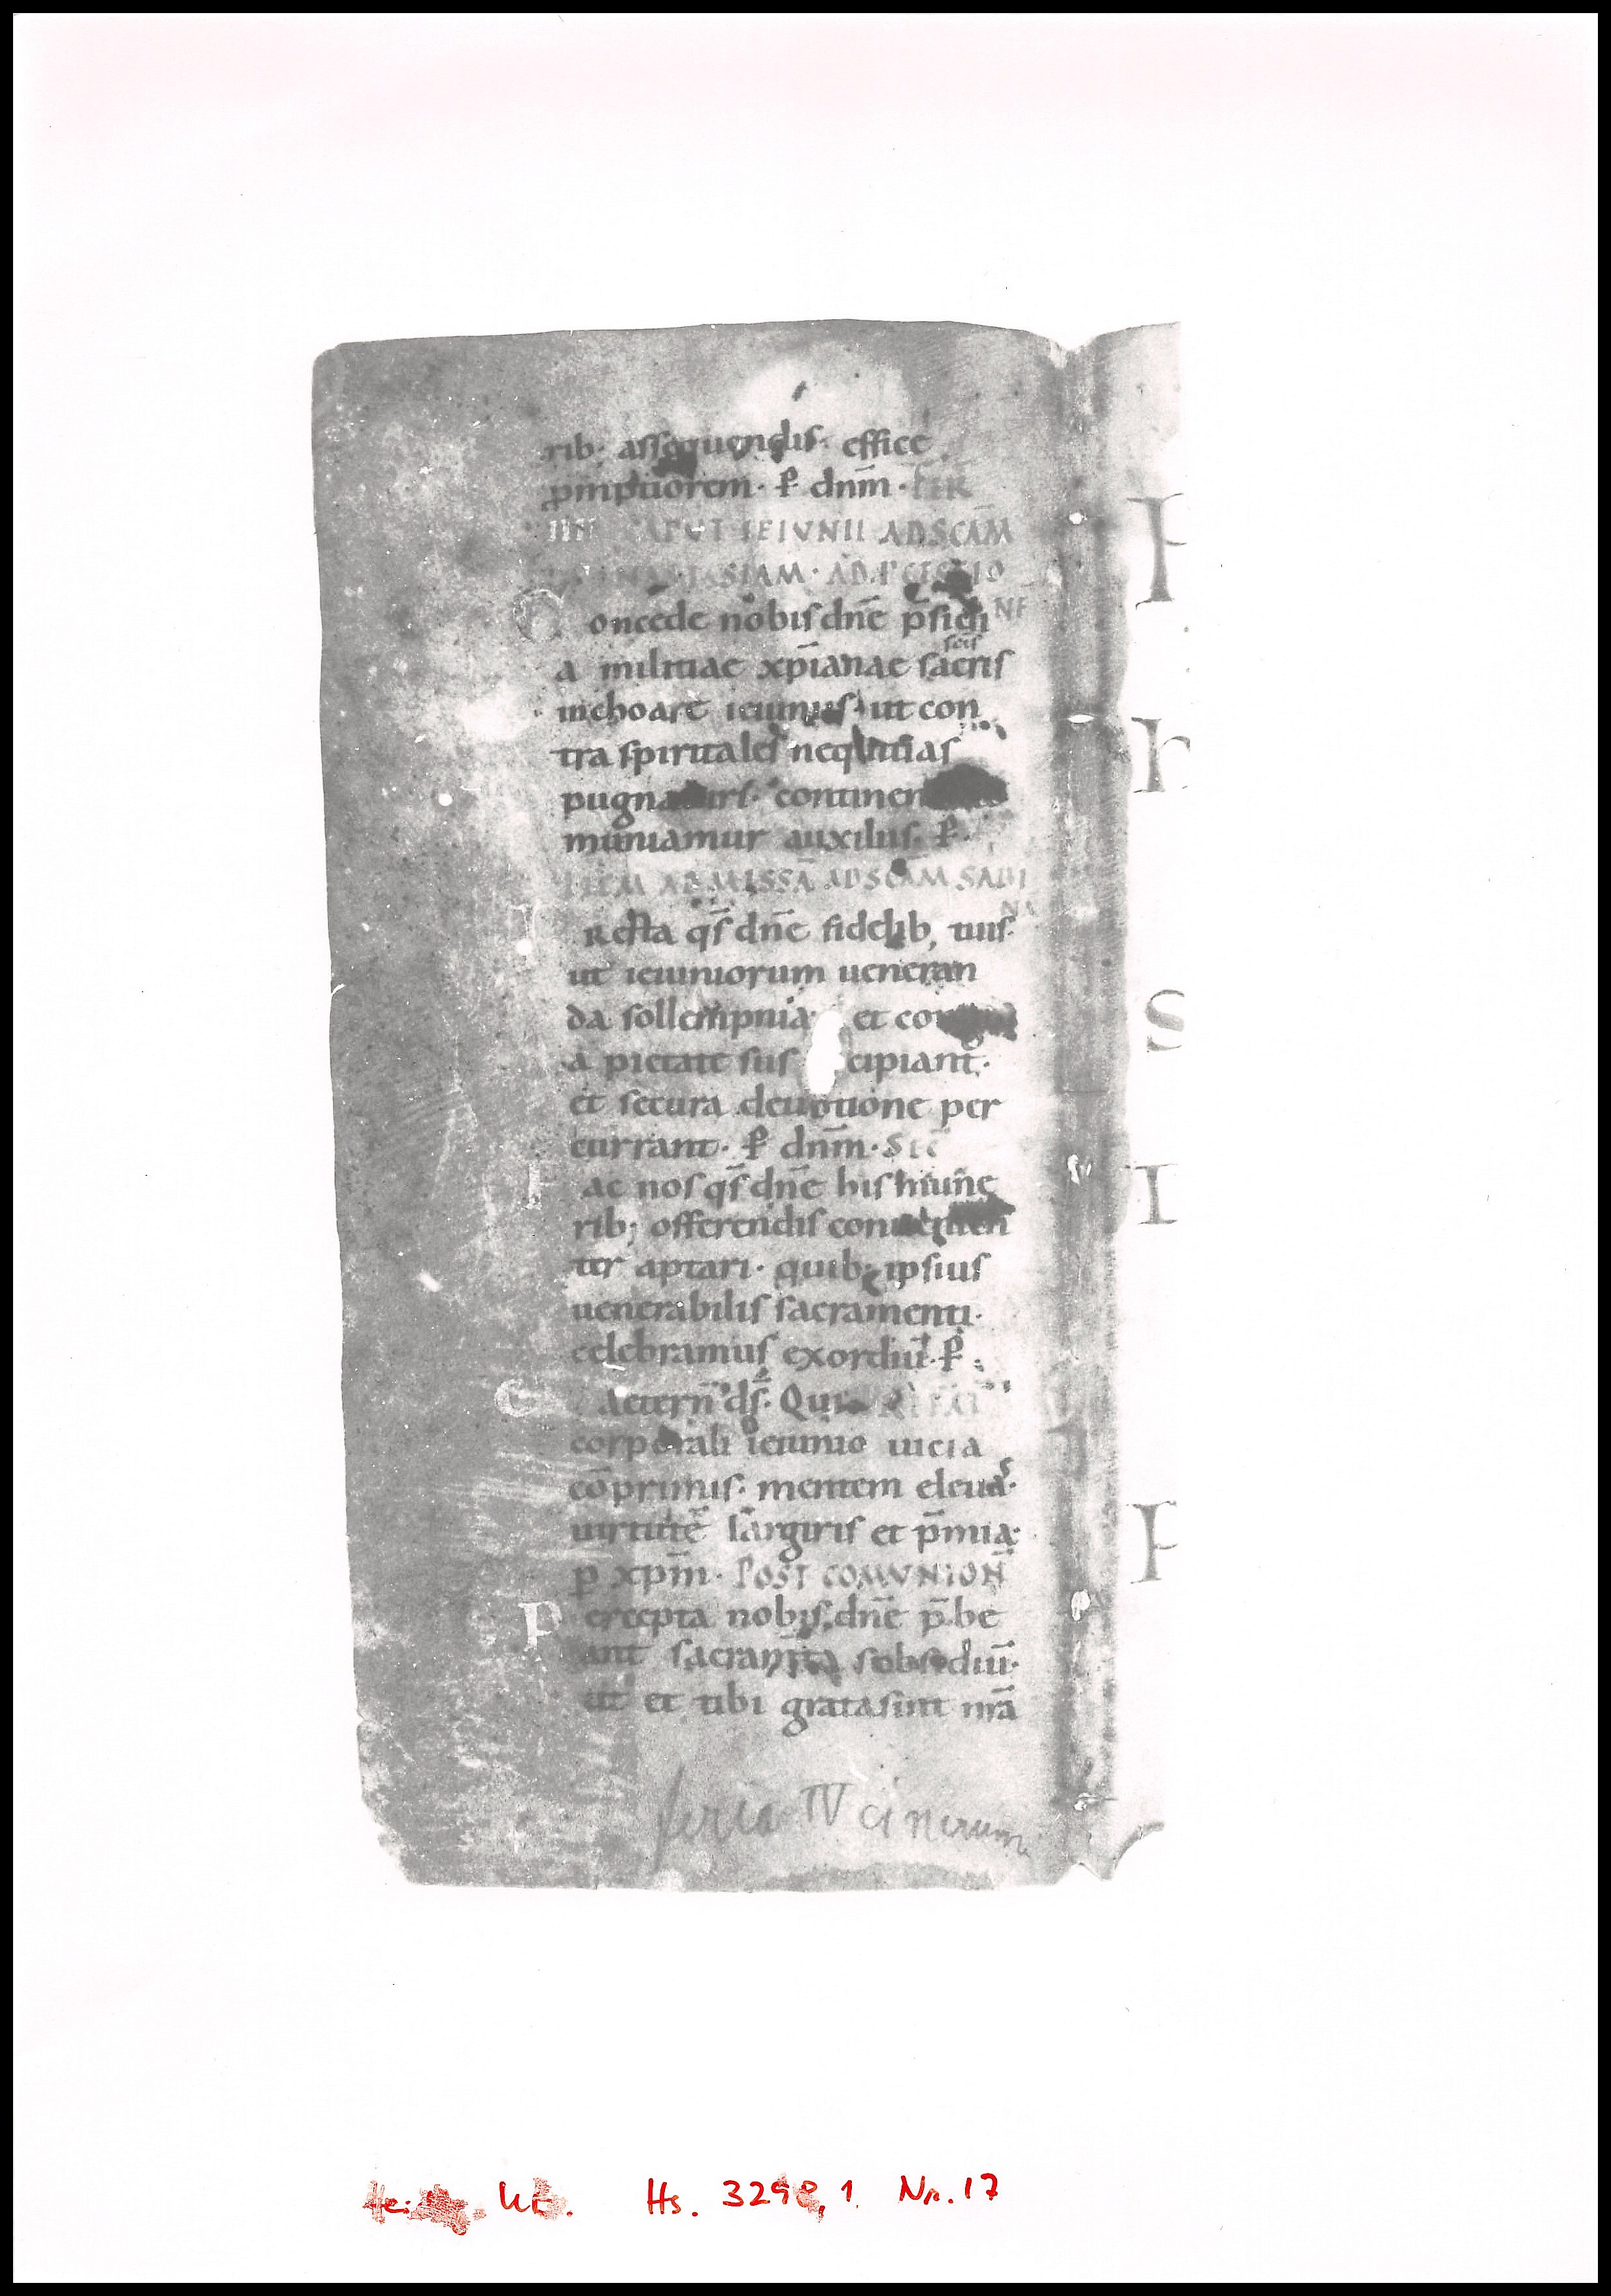 rib; assequendis· effice
ꝓmptiorem· ꝑ dnm̄· FER̄
IIII CAPUT IEIVNII AD SCĀM
ANASTASIAM· AD
Concede nobis dnē p̄sidi
a militiae xp̄ianae sacris
scis
inchoare ieiuniis· ut con
tra spiritales nequitias
pugnaturi· continen
muniamur auxiliis· ꝑ
ITEM AD MISSĀ AD SCĀM SABI
NA
Presta qs̄ dnē fidelib; tuis·
ut ieiuniorum ueneran
da sollempnia· et con
a pietate suscipiant·
et secura deuotione per
currant· ꝑ dnm̄· SEC̄
Fac nos qs̄ dnē his mune
rib; offerendis conuenien
ter aptari· quib; ipsius
uenerabilis sacramenti·
celebramus exordiū· ꝑ
aetern̄ ds̄· Qui
corporali ieiunio uicia
cōprimis· mentem eleuas·
uirtutē largiris et p̄mia·
ꝑ xp̄m· POST COMVNION̄
Percepta nobis dnē p̄be
ant sacram̄ta sobsidiū·
ut et tibi grata sint nr̄a
feria IV cinerum
P
h
S
I
P
Hs. 3298,1 Nr. 17